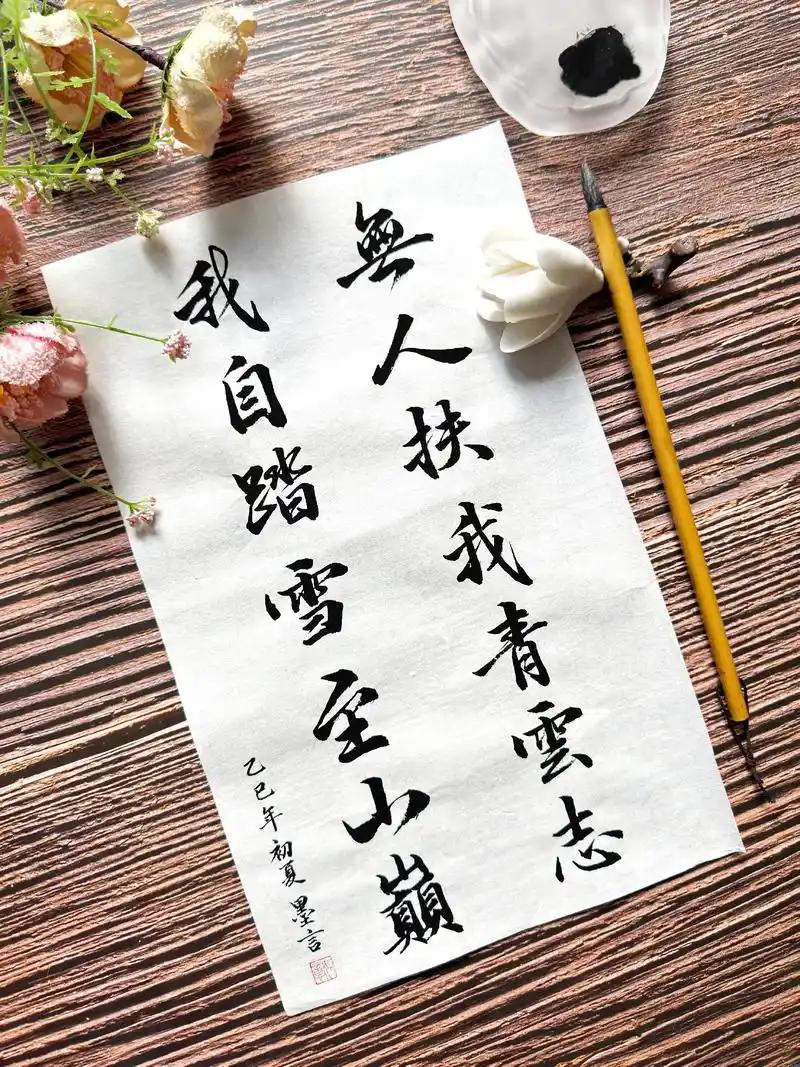 無人扶我青雲志
我自踏雪至山巔
乙巳年初夏墨言